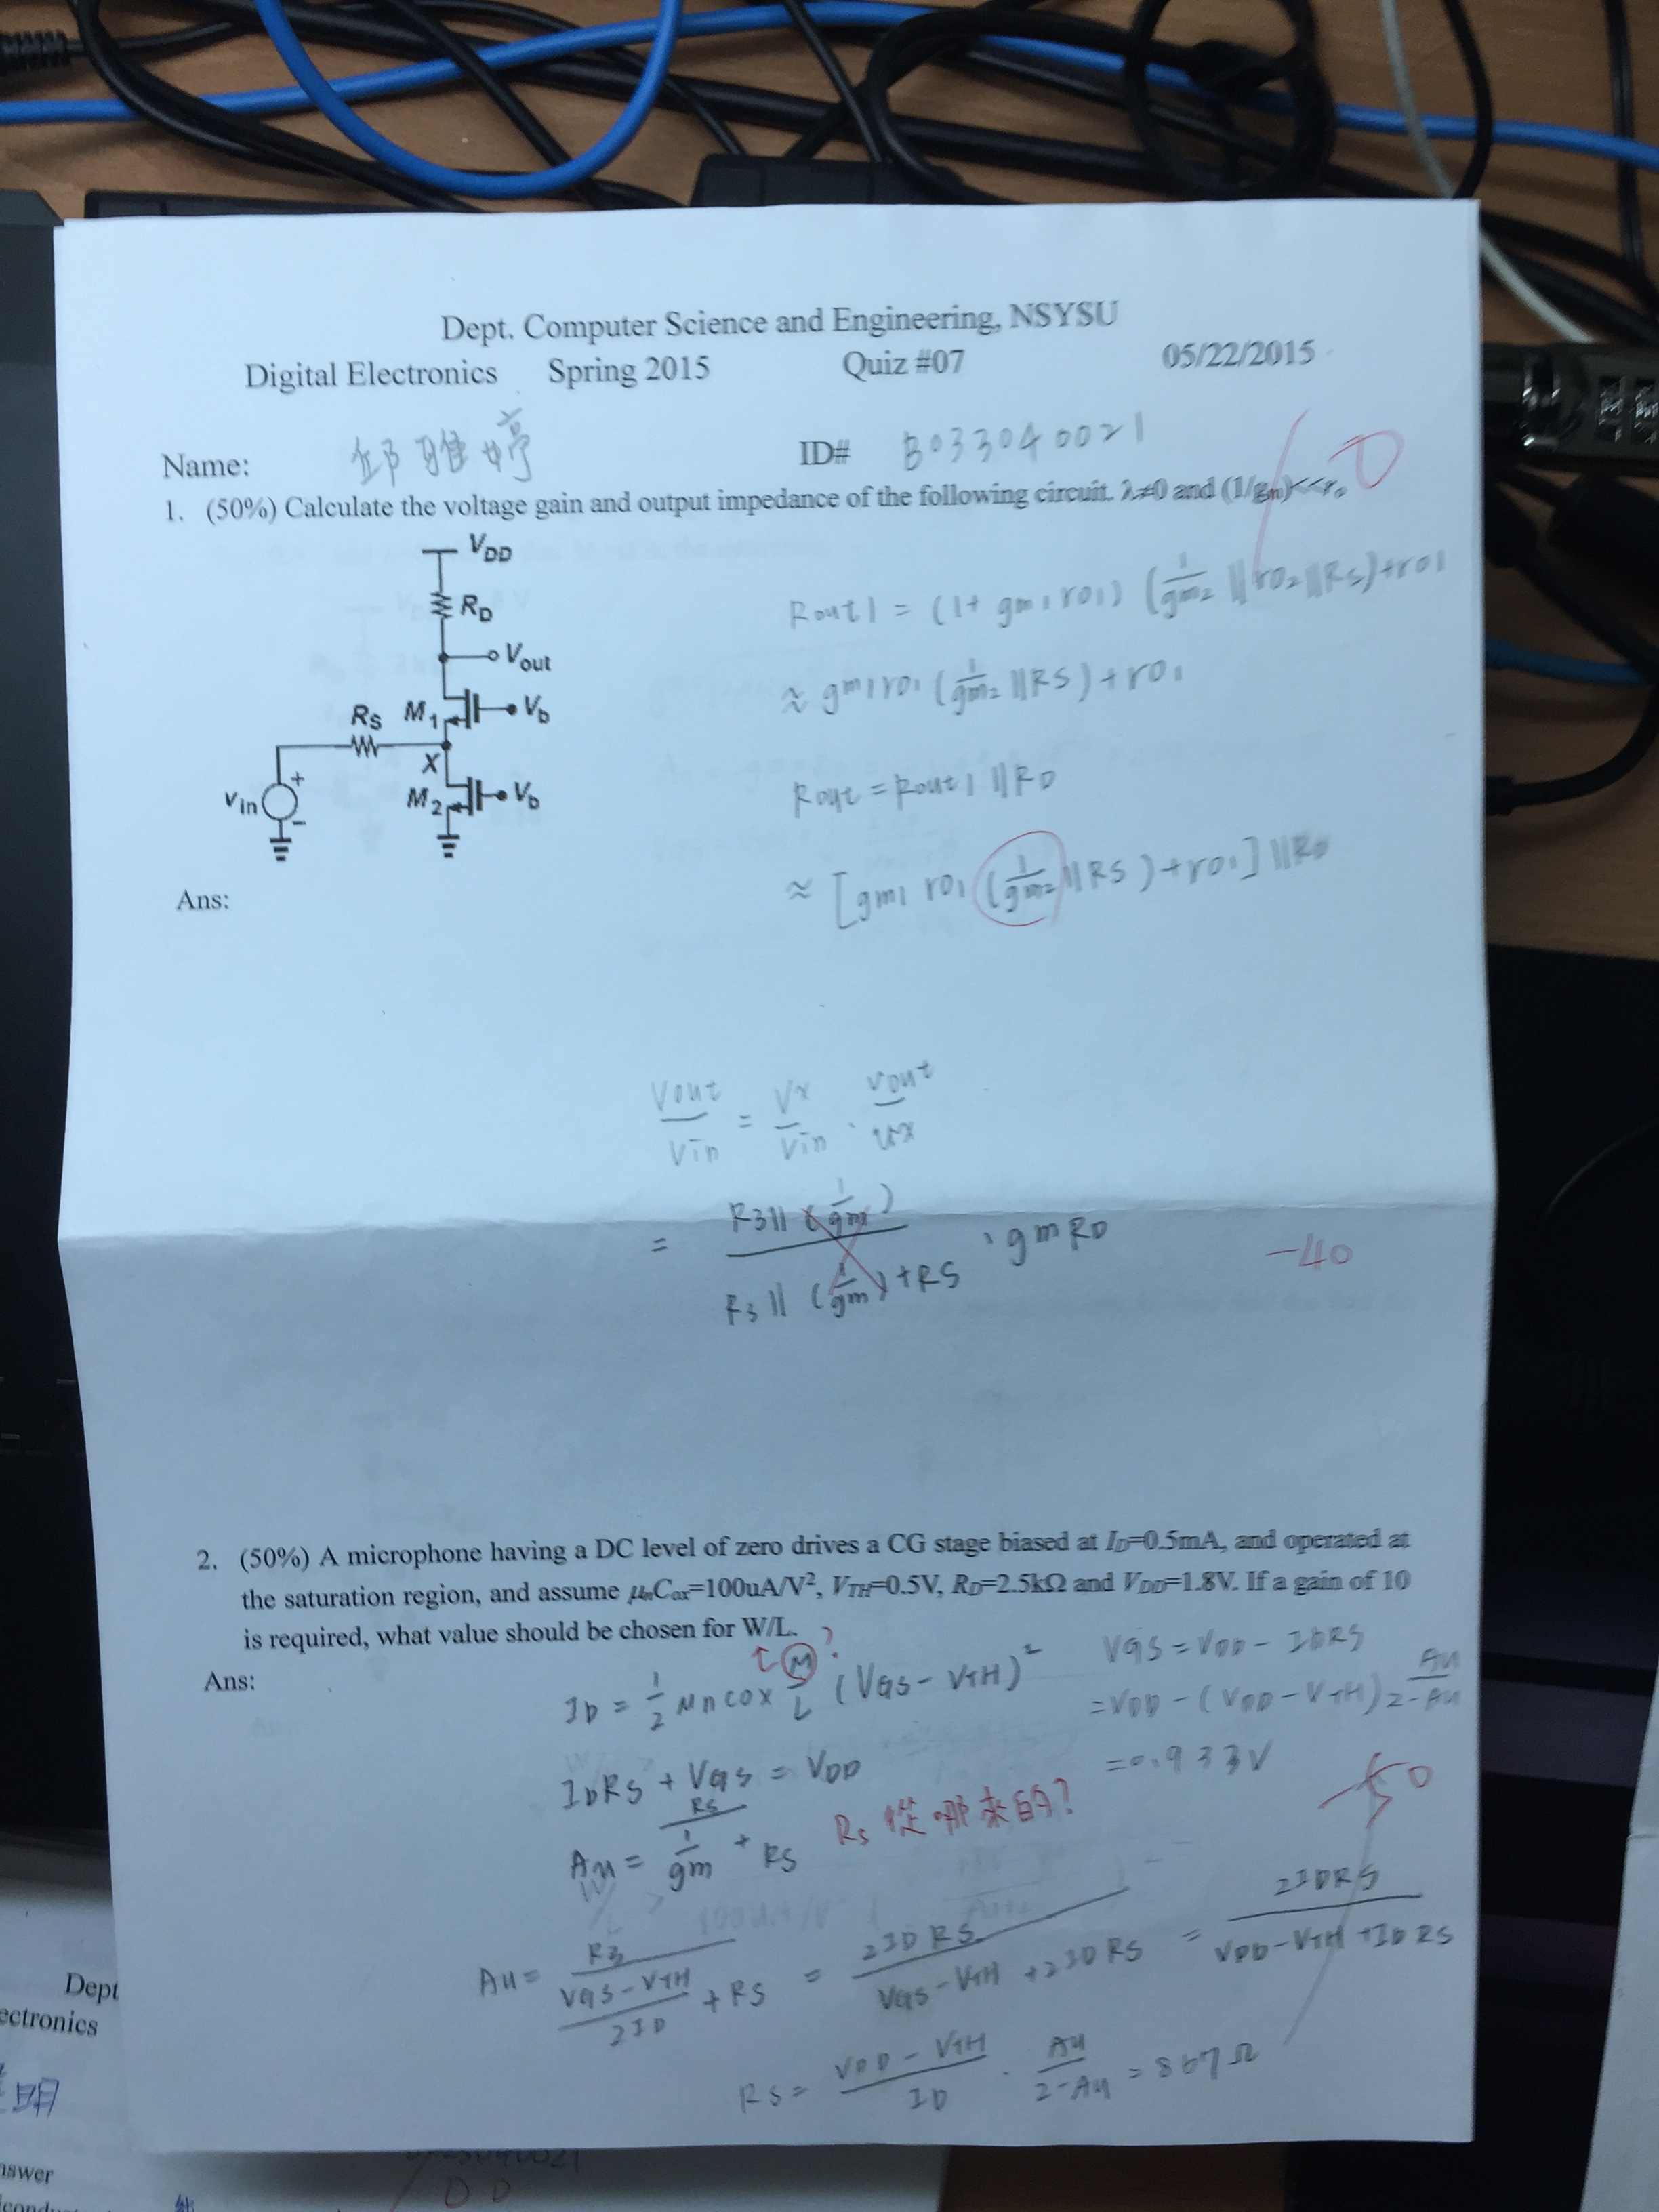 Dept. Computer Science and Engineering, NSYSU
Digital Electronics Spring 2015 Quiz #07 05/22/2015
Name: 邱雅婷 ID# B033040021
10
1. (50%) Calculate the voltage gain and output impedance of the following circuit. λ≠0 and (1/gm)<<ro
VDD
RD
Vout
Rs M1 Vb
X
Vin + −
M2 Vb
Rout1 = (1+gm1ro1) (1/gm2 || ro2 || Rs)+ro1
≈ gm1ro1 (1/gm2 || RS) + ro1
Rout = Rout1 || RD
≈ [gm1 ro1 (1/gm2 || RS) + ro1] || RD
Ans:
Vout/Vin = Vx/Vin · Vout/Vx
= R3||(1/gm) / R3||(1/gm)+RS · gmRD
-40
2. (50%) A microphone having a DC level of zero drives a CG stage biased at ID=0.5mA, and operated at
the saturation region, and assume μnCox=100uA/V², VTH=0.5V, RD=2.5kΩ and VDD=1.8V. If a gain of 10
is required, what value should be chosen for W/L.
Ans:
?
ID = 1/2 μnCox M/L (VGS - VTH)²
VGS = VDD - IDRS
= VDD - (VDD - VTH) Au/2-Au
= 0.933V
IDRS + VGS = VDD
-50
Au = RS / 1/gm + RS
Rs 從哪來的?
Au = R3 / VGS-VTH/2ID + RS = 2IDRS / VGS-VTH+2IDRS = 2IDRS / VDD-VTH+IDRS
RS = VDD-VTH/ID · Au/2-Au = 867Ω
Dept
ectronics
明
nswer